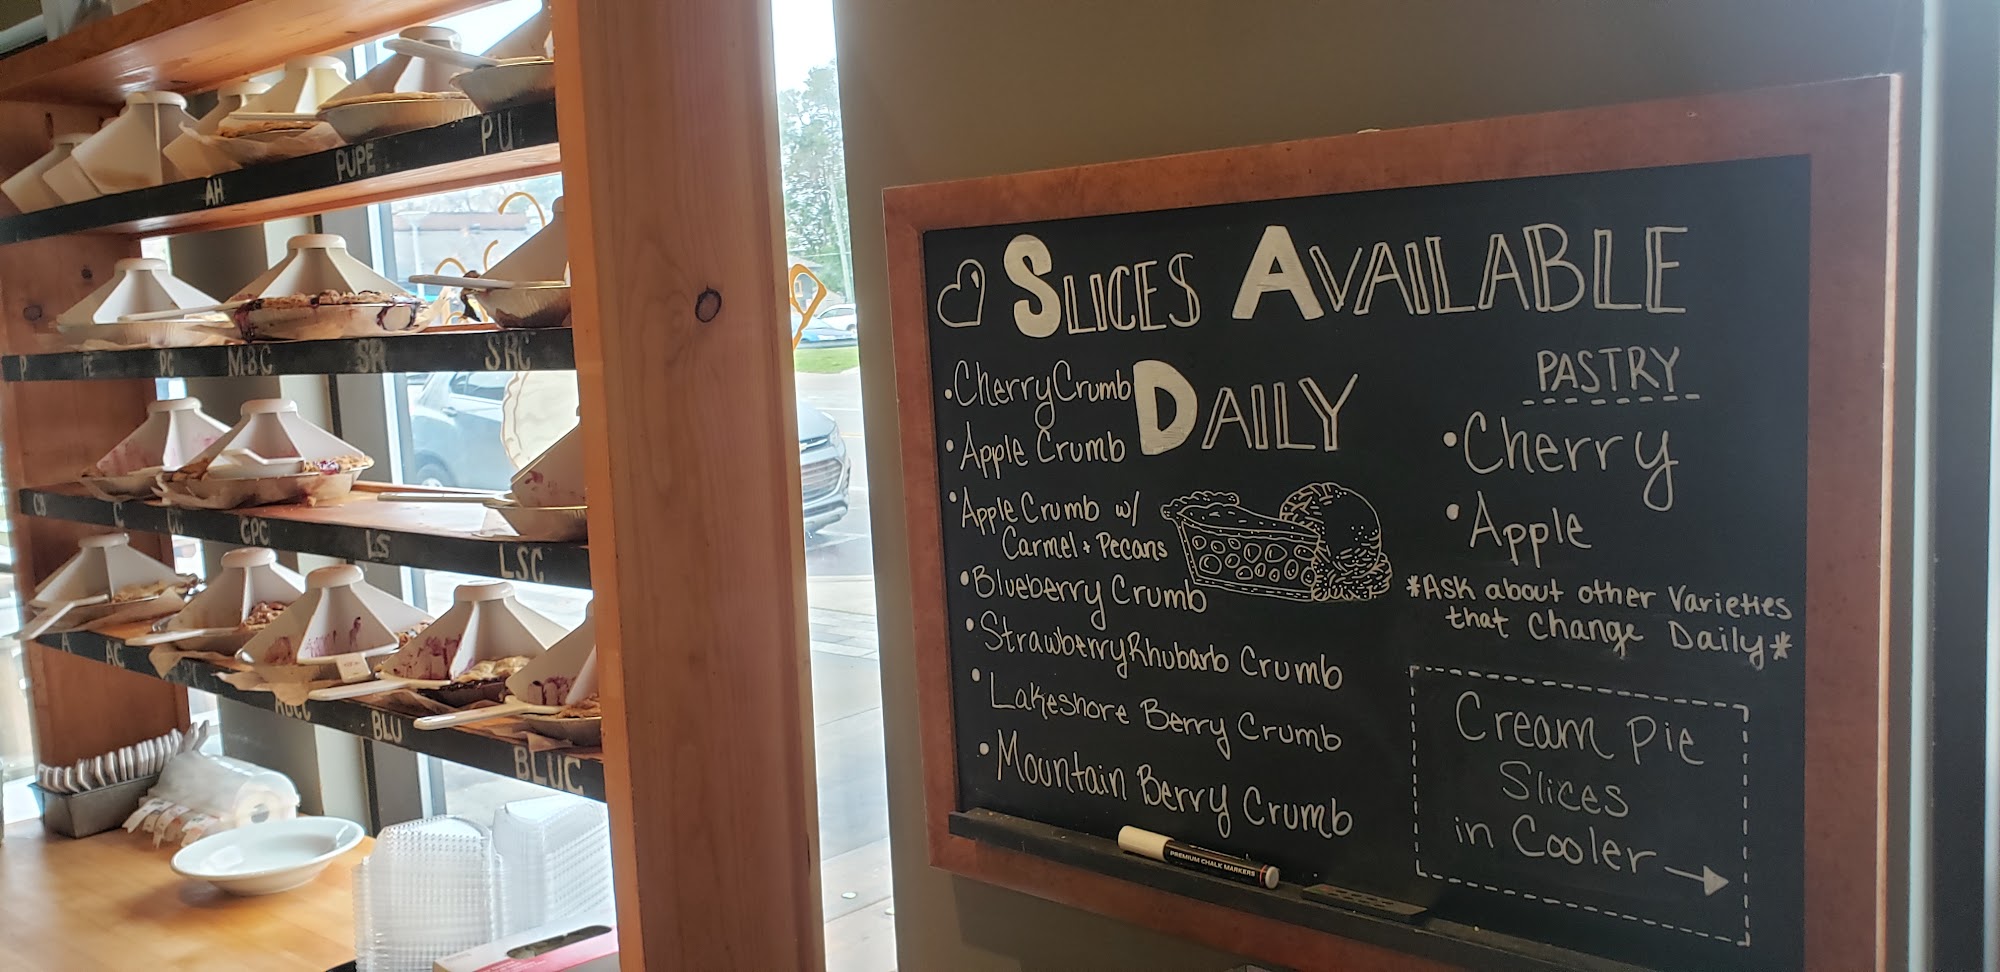 AH
PUPE
PU
P
PE
PC
MBC
SR
SRC
CB
C
CC
CPC
LS
LSC
A
AC
BLU
BLUC
SLICES AVAILABLE
DAILY
•Cherry Crumb
•Apple Crumb
•Apple Crumb w/
Carmel + Pecans
•Blueberry Crumb
•Strawberry Rhubarb Crumb
•Lakeshore Berry Crumb
•Mountain Berry Crumb
PASTRY
•Cherry
•Apple
*Ask about other Varieties
that Change Daily*
Cream Pie
Slices
in Cooler
PREMIUM CHALK MARKERS